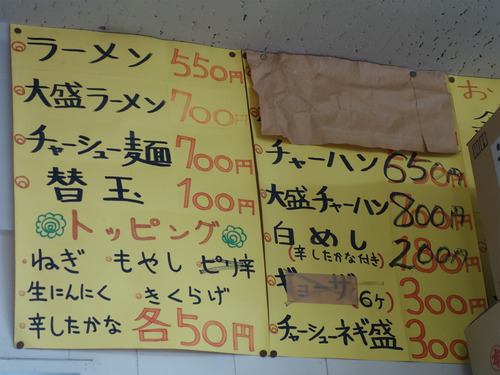 ラーメン 550円
大盛ラーメン 700円
チャーシュー麺 700円
替玉 100円
トッピング
ねぎ もやし ピリ辛
生にんにく きくらげ
辛したかな 各50円
チャーハン 650円
大盛チャーハン 800円
白めし 200円
(辛したかな付き)
ギョーザ (6ヶ) 300円
チャーシューネギ盛 300
お